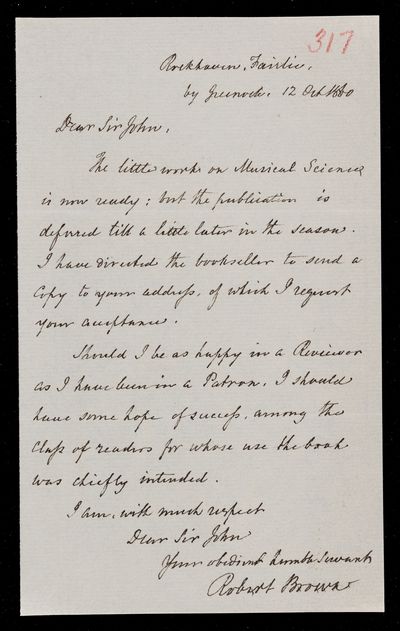 317
Rockhaven, Fairlie,
by Greenock. 12 Oct 1860
Dear Sir John,
The little work on Musical Science
is now ready; but the publication is
deferred till a little later in the season.
I have directed the bookseller to send a
Copy to your address, of which I request
your acceptance.
Should I be as happy in a Reviewer
as I have been in a Patron, I should
have some hope of success, among the
Class of readers for whose use the book
was chiefly intended.
I am, with much respect
Dear Sir John
Your obedient humble Servant
Robert Brown